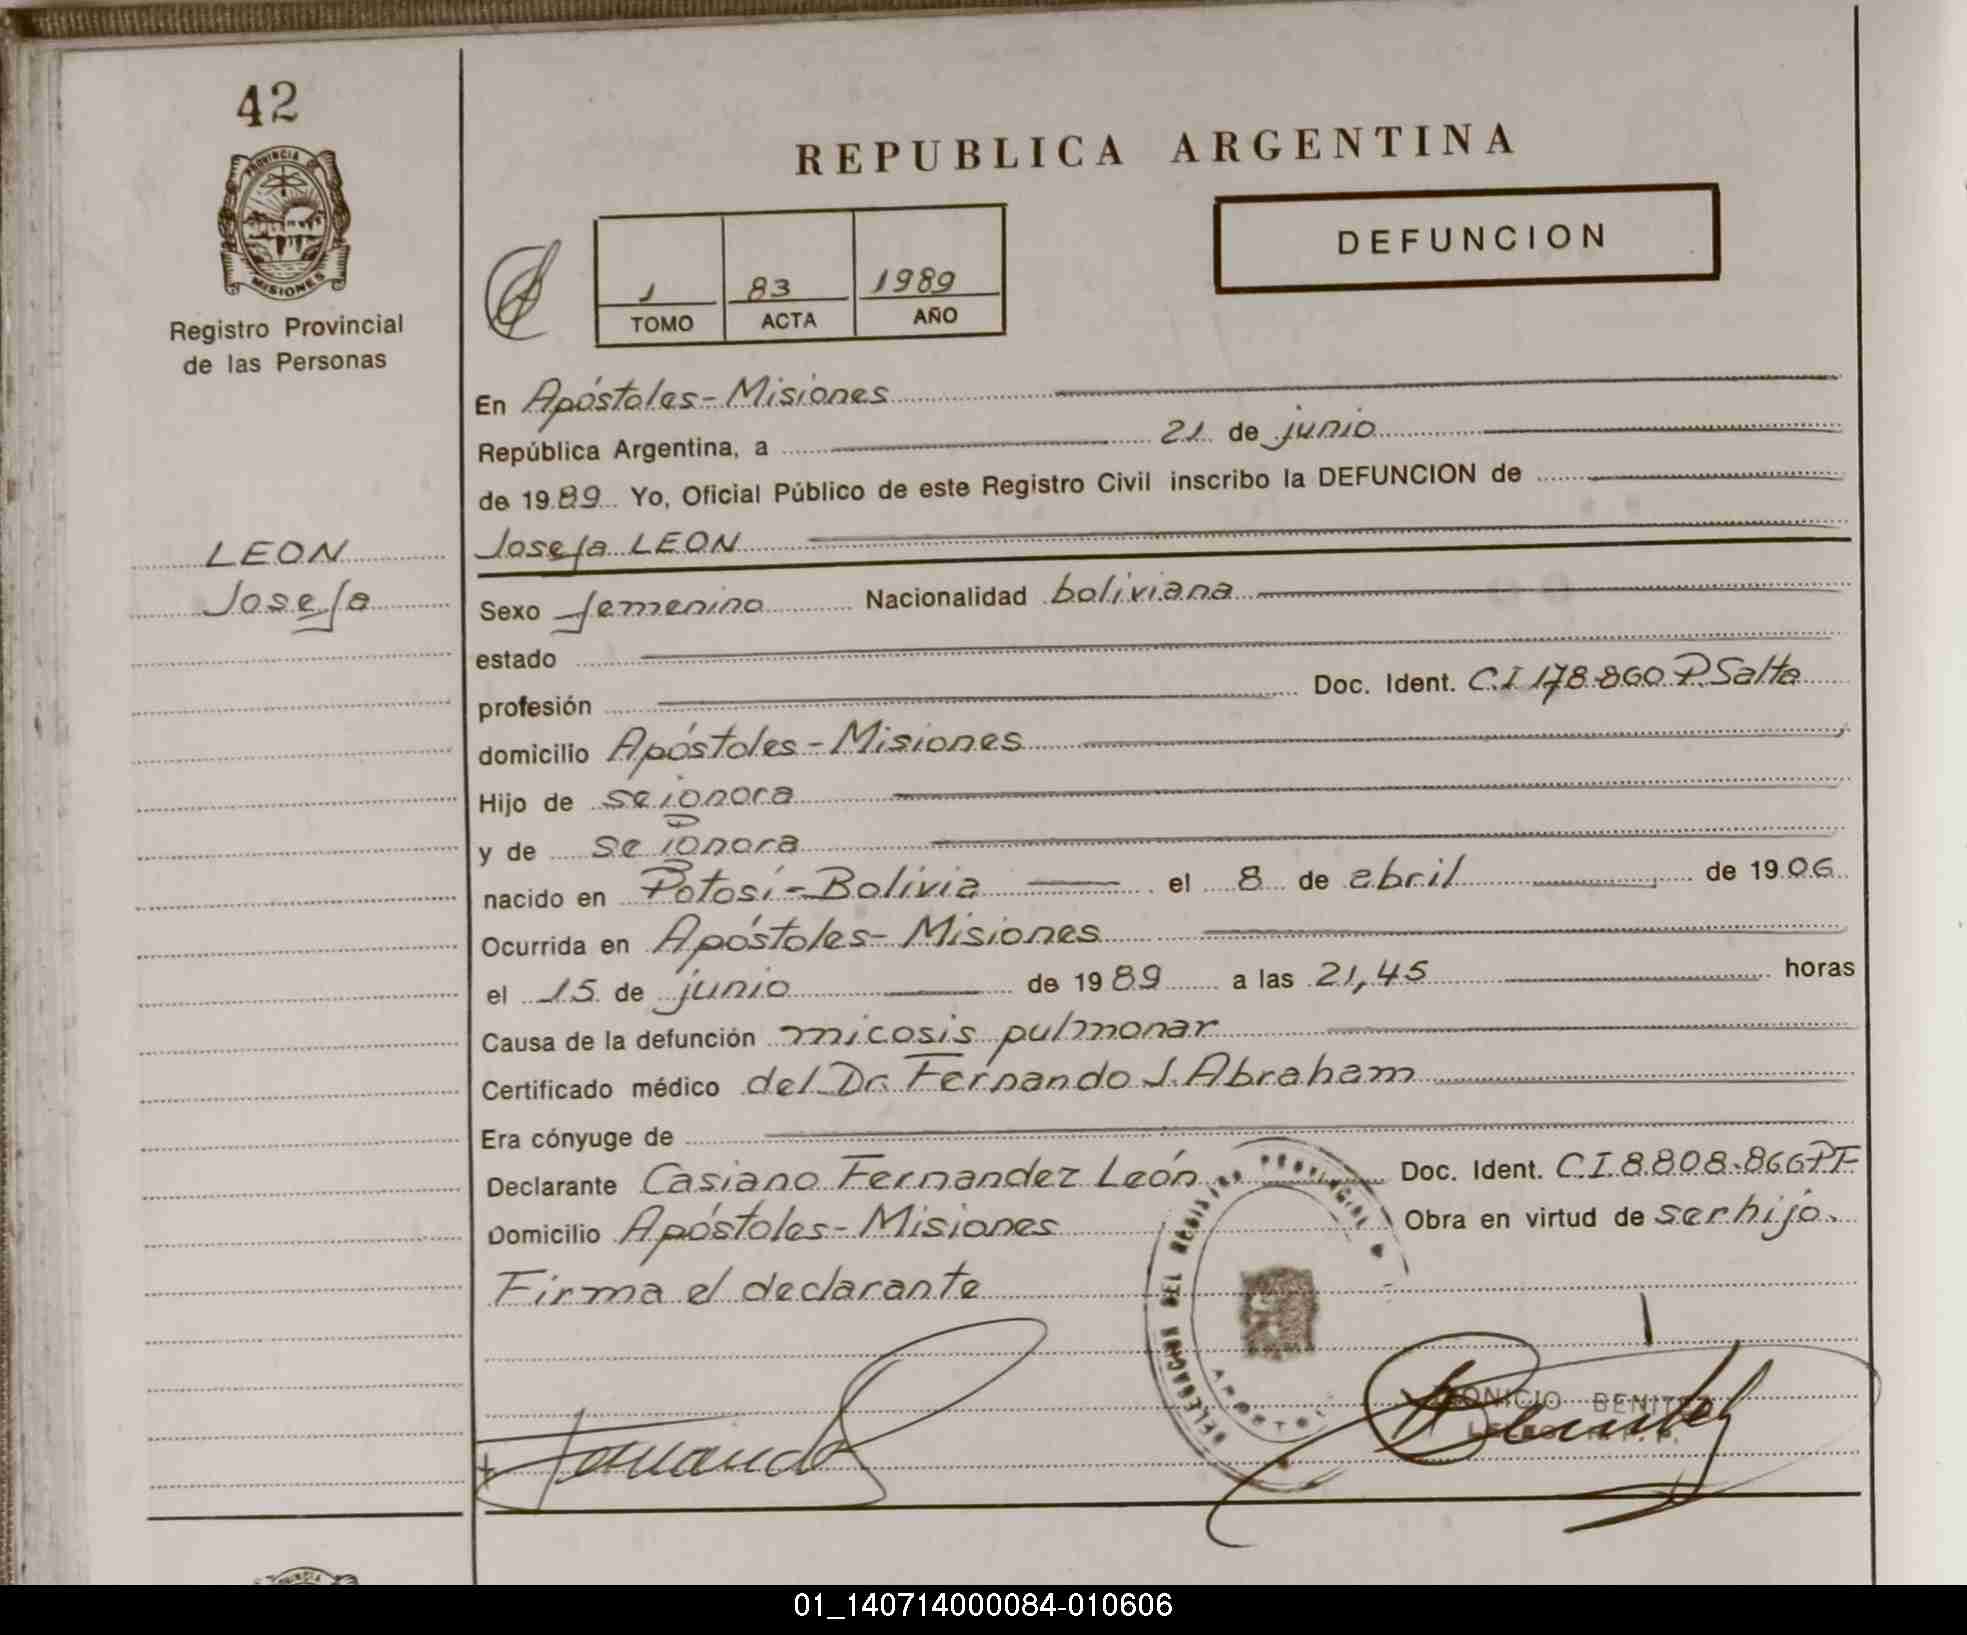 42
PROVINCIA
MISIONES
Registro Provincial
de las Personas
REPUBLICA ARGENTINA
DEFUNCION
1 83 1989
TOMO ACTA AÑO
En Apóstoles - Misiones
República Argentina, a 21 de junio
de 1989 Yo, Oficial Público de este Registro Civil inscribo la DEFUNCION de
LEON
Josefa
Josefa LEON
Sexo femenino Nacionalidad boliviana
estado
profesión Doc. Ident. C.I 178.860 P. Salta
domicilio Apóstoles - Misiones
Hijo de se ignora
y de se ignora
nacido en Potosí - Bolivia el 8 de abril de 1906
Ocurrida en Apóstoles - Misiones
el 15 de junio de 1989 a las 21,45 horas
Causa de la defunción micosis pulmonar
Certificado médico del Dr. Fernando J. Abraham
Era cónyuge de
Declarante Casiano Fernandez León Doc. Ident. C.I. 8.808.866 PF
Domicilio Apóstoles - Misiones Obra en virtud de ser hijo.
Firma el declarante
DELEGACION DEL REGISTRO PROVINCIAL
BENITEZ
01_140714000084-010606